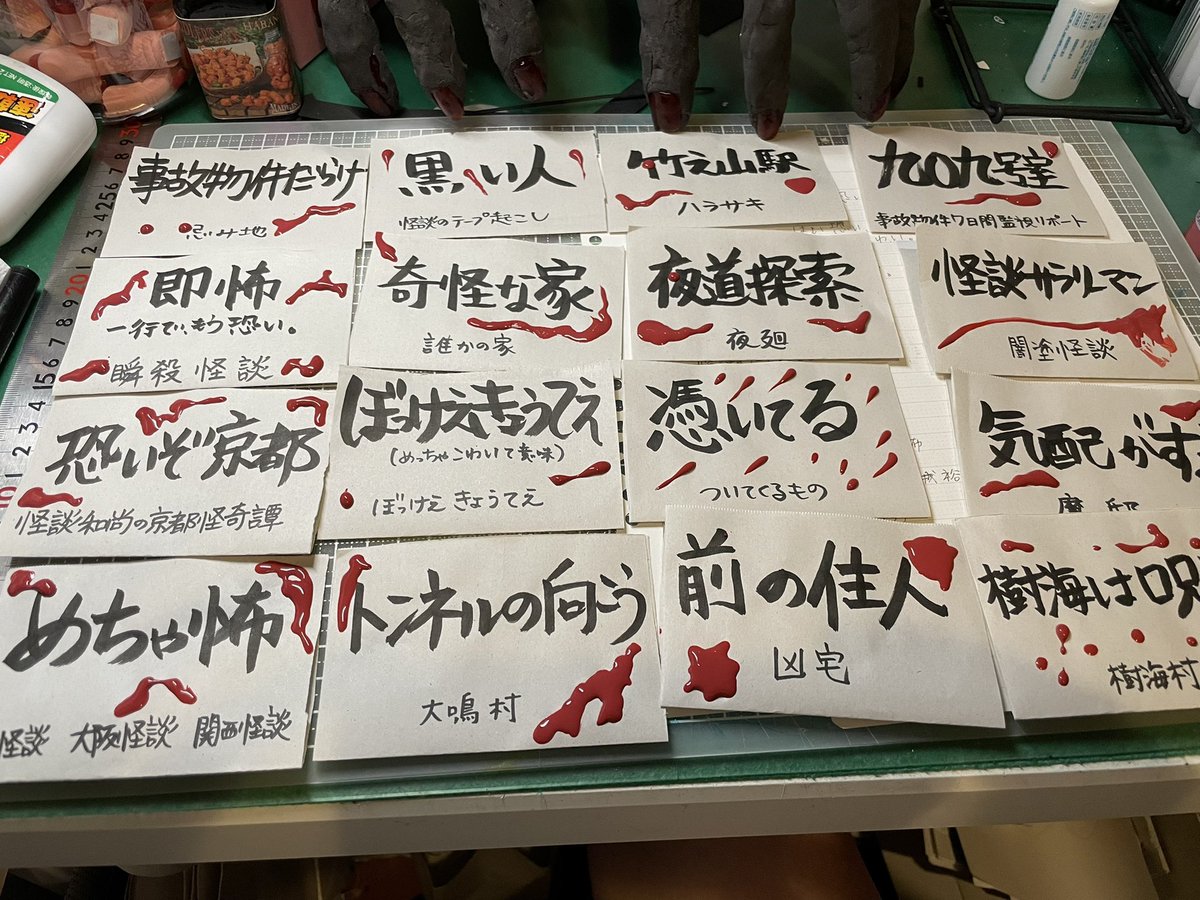 事故物件だらけ
忌み地
黒い人
怪談のテープ起こし
竹之山駅
ハラサキ
九〇九号室
事故物件7日間監視リポート
即怖
一行でもう恐い。
瞬殺怪談
奇怪な家
誰かの家
夜道探索
夜廻
怪談サラリーマン
闇塗怪談
恐いぞ京都
怪談和尚の京都怪奇譚
ぼっけえきょうてえ
(めっちゃこわいて意味)
ぼっけえ きょうてえ
憑いてる
ついてくるもの
気配がす
めちゃ怖
怪談 大阪怪談 関西怪談
トンネルの向こう
犬鳴村
前の住人
凶宅
樹海は呪
樹海村